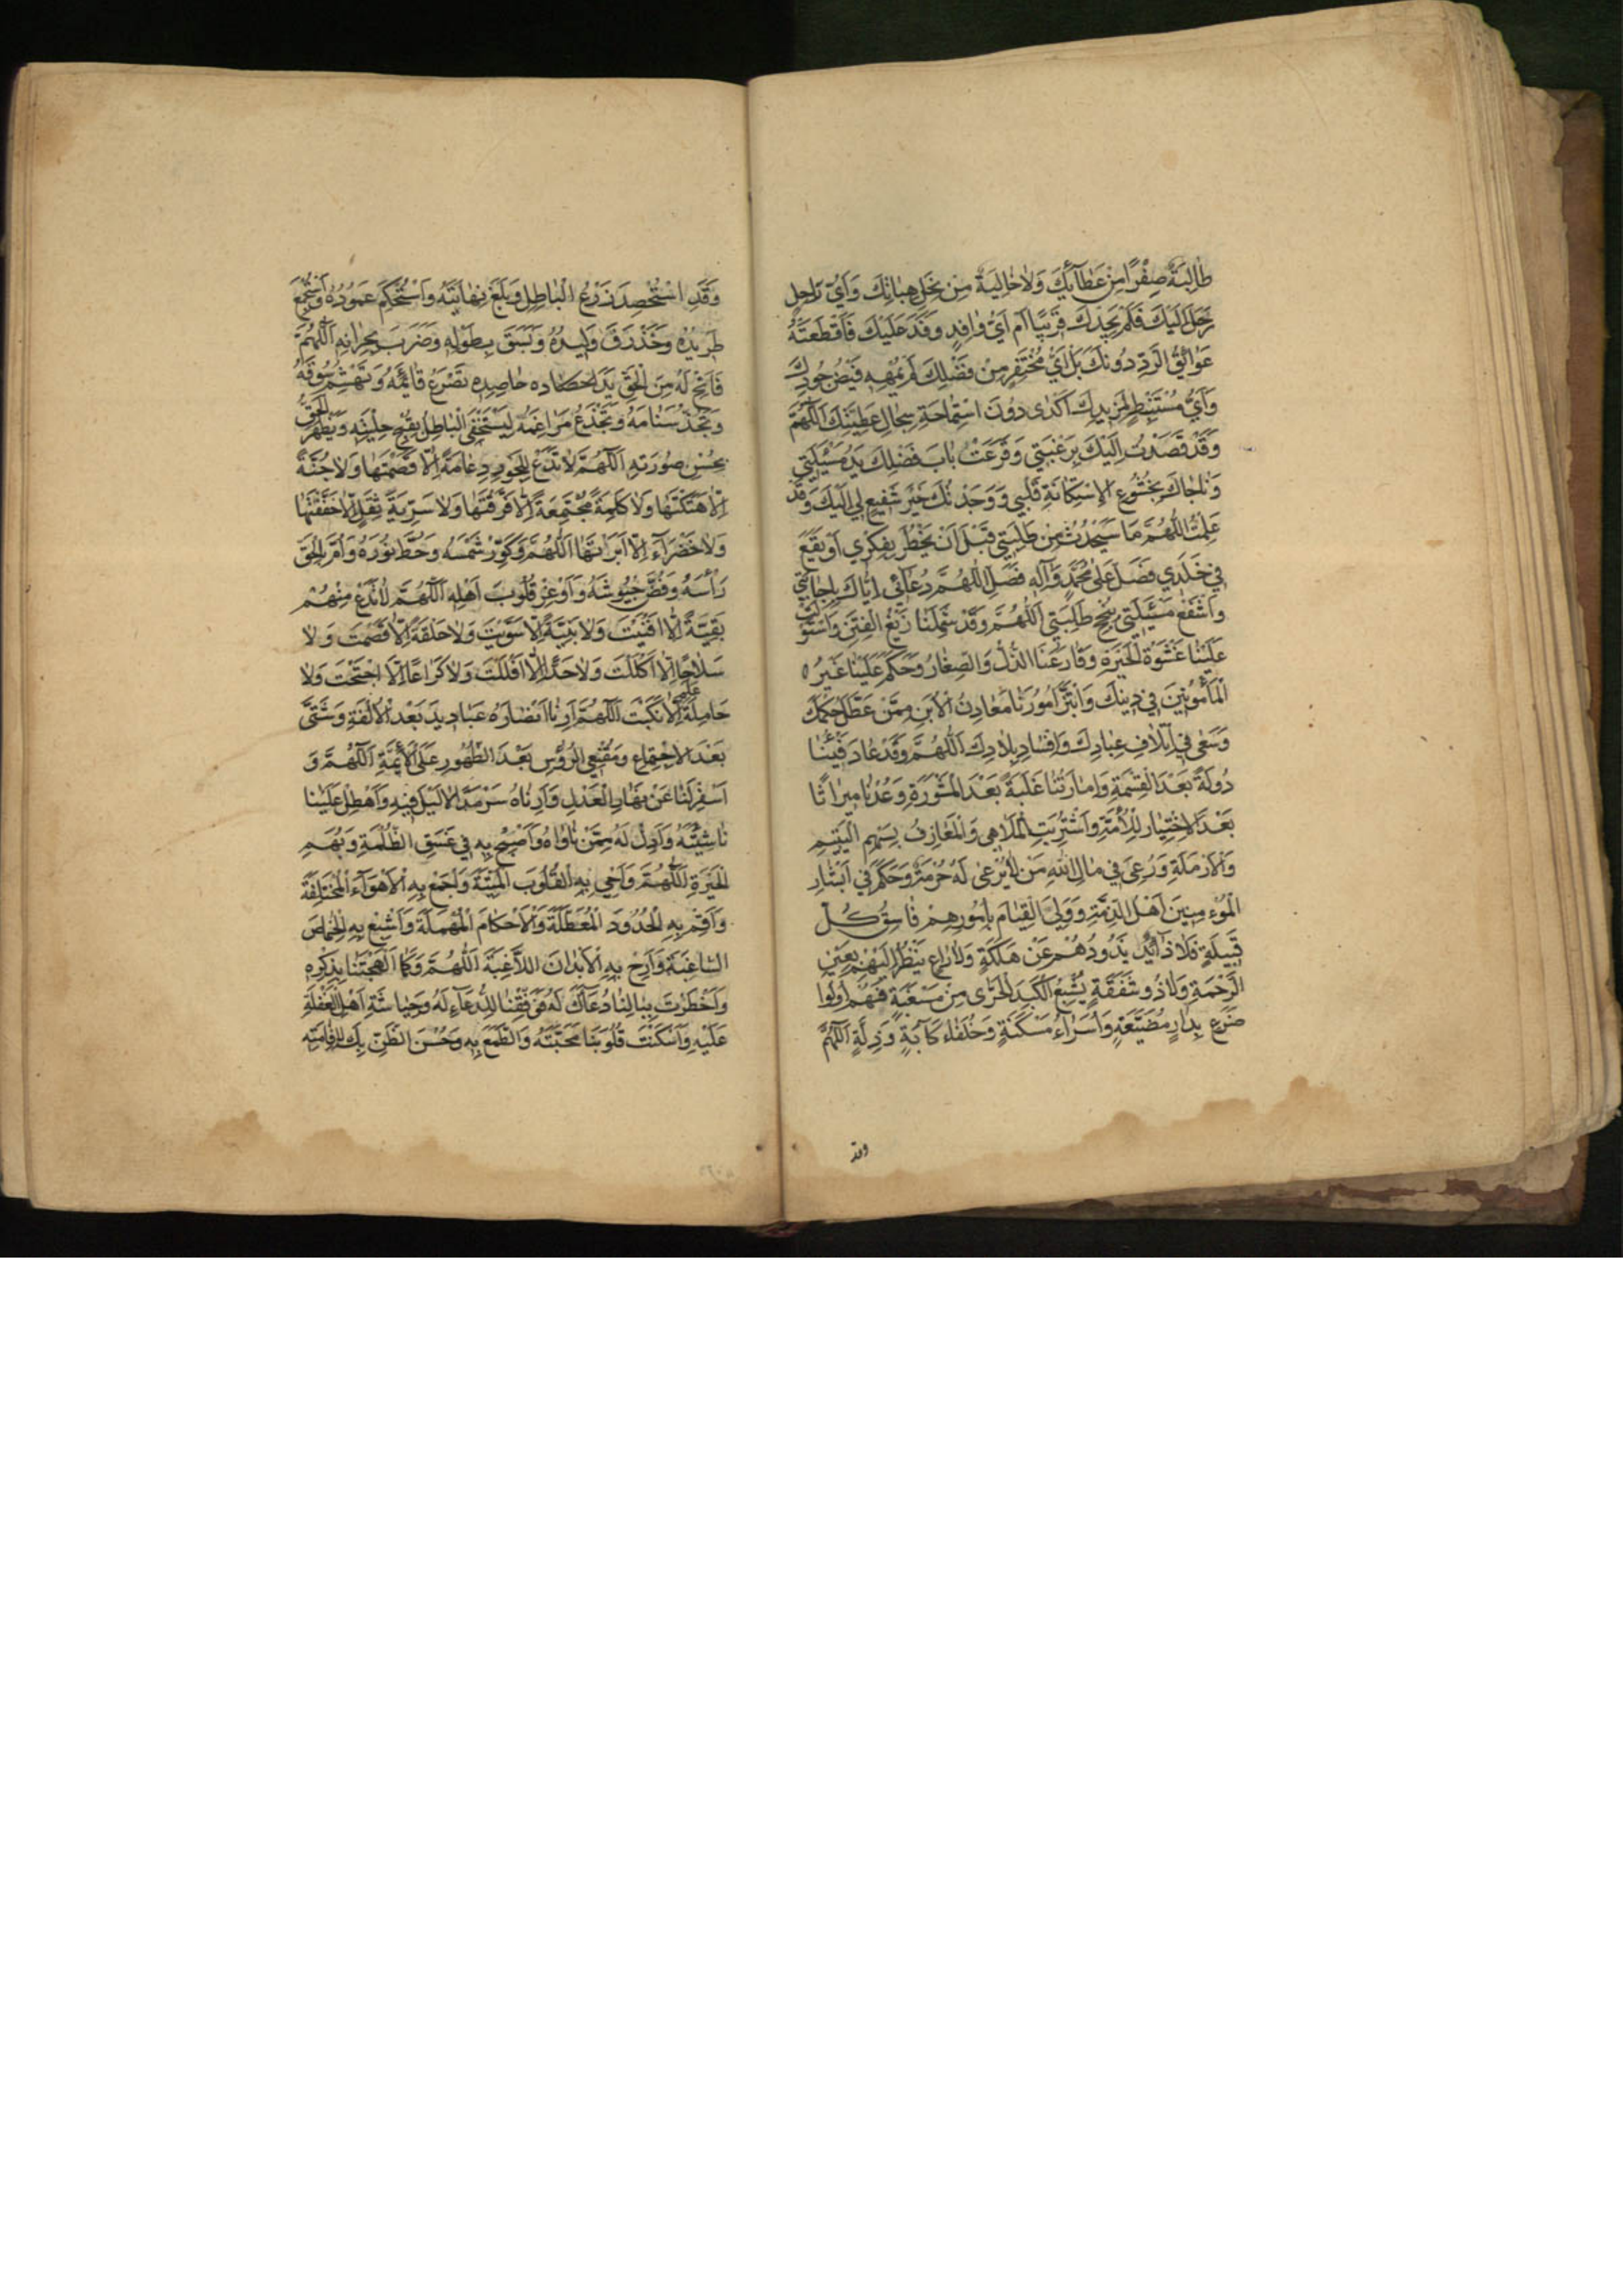 طٰالِبَةً صِفْرًا مِنْ عَطٰآيٰكَ وَلاٰ خٰالِيَةً مِنْ نِحَلِ هِبٰاتِكَ وَاَيُّ رٰاحِلٍ
رَحَلَ اِلَيْكَ فَلَمْ يَجِدْكَ قَرِيبًا اَمْ اَيُّ وٰافِدٍ وَفَدَ عَلَيْكَ فَاقْتَطَعَتْهُ
عَوٰائِقُ الرَّدِّ دُونَكَ بَلْ اَيُّ مُحْتَفِرٍ مِنْ فَضْلِكَ لَمْ يُمْهِهِ فَيْضُ جُودِكَ
وَاَيُّ مُسْتَنْبِطٍ لِمَزِيدِكَ اَكْدٰى دُونَ اسْتِمٰاحَةِ سِجٰالِ عَطِيَّتِكَ اَللّٰهُمَّ
وَقَدْ قَصَدْتُ اِلَيْكَ بِرَغْبَتِي وَقَرَعَتْ بٰابَ فَضْلِكَ يَدُ مَسْئَلَتِي
وَنٰاجٰاكَ بِخُشُوعِ الاِسْتِكٰانَةِ قَلْبِي وَوَجَدْتُكَ خَيْرَ شَفِيعٍ لِي اِلَيْكَ وَقَدْ
عَلِمْتَ اللّٰهُمَّ مٰا سَيَحْدُثُ مِنْ طَلِبَتِي قَبْلَ اَنْ يَخْطُرَ بِفِكْرِي اَوْ يَقَعَ
فِي خَلَدِي فَصَلِّ عَلٰى مُحَمَّدٍ وَآلِهِ فَصِلِ اللّٰهُمَّ دُعٰآئِي اِيّٰاكَ بِاِجٰابَتِي
وَاشْفَعْ مَسْئَلَتِي بِنُجْحِ طَلِبَتِي اَللّٰهُمَّ وَقَدْ شَمِلَنٰا زَيْغُ الْفِتَنِ وَاسْتَوْلَتْ
عَلَيْنٰا غَشْوَةُ الْحَيْرَةِ وَقٰارَعَنَا الذُّلُّ وَالصِّغٰارُ وَحَكَمَ عَلَيْنٰا غَيْرُ
الْمَأْمُونِينَ فِي دِينِكَ وَابْتَزَّ اُمُورَنٰا مَعٰادِنُ الاُبَنِ مِمَّنْ عَطَّلَ حُكْمَكَ
وَسَعٰى فِي اِتْلاٰفِ عِبٰادِكَ وَاِفْسٰادِ بِلاٰدِكَ اَللّٰهُمَّ وَقَدْ عٰادَ فَيْئُنٰا
دُولَةً بَعْدَ الْقِسْمَةِ وَاِمٰارَتُنٰا غَلَبَةً بَعْدَ الْمَشْوَرَةِ وَعُدْنٰا مِيرٰاثًا
بَعْدَ الاِخْتِيٰارِ لِلاُمَّةِ وَاشْتُرِيَتِ الْمَلاٰهِي وَالْمَعٰازِفُ بِسَهْمِ الْيَتِيمِ
وَالاَرْمَلَةِ وَرُعِيَ فِي مٰالِ اللهِ مَنْ لاٰ يُرْعٰى لَهُ حُرْمَةٌ وَحَكَمَ فِي اَبْشٰارِ
الْمُؤْمِنِينَ اَهْلُ الذِّمَّةِ وَوَلِيَ الْقِيٰامَ بِاُمُورِهِمْ فٰاسِقُ كُلِّ
قَبِيلَةٍ فَلاٰ ذٰآئِدٌ يَذُودُهُمْ عَنْ هَلَكَةٍ وَلاٰ رٰاعٍ يَنْظُرُ اِلَيْهِمْ بِعَيْنِ
الرَّحْمَةِ وَلاٰ ذُو شَفَقَةٍ يُشْبِعُ الْكَبِدَ الْحَرّٰى مِنْ مَسْغَبَةٍ فَهُمْ اُولُوا
ضَرَعٍ بِدٰارِ مَضِيعَةٍ وَاُسَرٰآءُ مَسْكَنَةٍ وَخُلَفٰاءُ كَآبَةٍ وَذِلَّةٍ اَللّٰهُمَّ
وقد
وَقَدِ اسْتُحْصِدَ زَرْعُ الْبٰاطِلِ وَبَلَغَ نِهٰايَتَهُ وَاسْتَحْكَمَ عَمُودُهُ وَاسْتَجْمَعَ
طَرِيدُهُ وَخَذْرَفَ وَلِيدُهُ وَبَسَقَ بِطَوْلِهِ وَضَرَبَ بِجِرٰانِهِ اَللّٰهُمَّ
فَاَتِحْ لَهُ مِنَ الْحَقِّ يَدًا حَصّٰادَه حٰاصِدِهِ تَصْرَعُ قٰائِمَهُ وَتَهْشِمُ سُوقَهُ
وَتَجُذُّ سَنٰامَهُ وَتَجْذَعُ مَرٰاغِمَهُ لِيَسْتَخْفِيَ الْبٰاطِلُ بِقُبْحِ حِلْيَتِهِ وَيَظْهَرَ الْحَقُّ
بِحُسْنِ صُورَتِهِ اَللّٰهُمَّ لاٰ تَدَعْ لِلْجَوْرِ دِعٰامَةً اِلاّٰ قَصَمْتَهٰا وَلاٰ جُنَّةً
اِلاّٰ هَتَكْتَهٰا وَلاٰ كَلِمَةً مُجْتَمِعَةً اِلاّٰ فَرَّقْتَهٰا وَلاٰ سَرِيَّةَ ثِقْلٍ اِلاّٰ خَفَّفْتَهٰا
وَلاٰ خَضْرٰآءَ اِلاّٰ اَبَرْتَهٰا اَللّٰهُمَّ وَكَوِّرْ شَمْسَهُ وَحُطَّ نُورَهُ وَاُمَّ بِالْحَقِّ
رَأْسَهُ وَفُضَّ جُيُوشَهُ وَاَوْعِرْ قُلُوبَ اَهْلِهِ اَللّٰهُمَّ لاٰ تَدَعْ مِنْهُمْ
بَقِيَّةً اِلاّٰ اَفْنَيْتَ وَلاٰ بَنِيَّةً اِلاّٰ سَوَّيْتَ وَلاٰ حَلْقَةً اِلاّٰ قَصَمْتَ وَلاٰ
سَلاٰحًا اِلاّٰ اَكْلَلْتَ وَلاٰ حَدًّا اِلاّٰ اَفْلَلْتَ وَلاٰ كَرٰاعًا اِلاَّ اجْتَحْتَ وَلاٰ
حٰامِلَةَ عَلَمٍ اِلاّٰ نَكَّبْتَ اَللّٰهُمَّ اَرِنٰا اَنْصٰارَهُ عَبٰادِيدَ بَعْدَ الاُلْفَةِ وَشَتّٰى
بَعْدَ الاِجْتِمٰاعِ وَمُقْنِعِي الرُّؤُسِ بَعْدَ الظُّهُورِ عَلَى الاُمَّةِ اَللّٰهُمَّ وَ
اَسْفِرْ لَنٰا عَنْ نَهٰارِ الْعَدْلِ وَاَرِنٰاهُ سَرْمَدًا لاٰ لَيْلَ فِيهِ وَاَهْطِلْ عَلَيْنٰا
نٰاشِئَتَهُ وَاَدِلْ لَهُ مِمَّنْ نٰاوٰاهُ وَاَصْبِحْ بِهِ فِي غَسَقِ الظُّلْمَةِ وَبُهَمِ
الْحَيْرَةِ اَللّٰهُمَّ وَاَحْيِ بِهِ الْقُلُوبَ الْمَيِّتَةَ وَاجْمَعْ بِهِ الاَهْوٰآءَ الْمُخْتَلِفَةَ
وَاَقِمْ بِهِ الْحُدُودَ الْمُعَطَّلَةَ وَالاَحْكٰامَ الْمُهْمَلَةَ وَاَشْبِعْ بِهِ الْخِمٰاصَ
السّٰاغِبَةَ وَاَرِحْ بِهِ الاَبْدٰانَ اللاّٰغِبَةَ اَللّٰهُمَّ وَكَمٰا اَلْهَجْتَنٰا بِذِكْرِهِ
وَاَخْطَرْتَ بِبٰالِنٰا دُعٰآئَكَ لَهُ فَوَفِّقْنٰا لِلدُّعٰآءِ لَهُ وَحِيٰاشَةِ اَهْلِ الْغَفْلَةِ
عَلَيْهِ وَاَسْكَنْتَ قُلُوبَنٰا مَحَبَّتَهُ وَالطَّمَعَ بِهِ وَحُسْنَ الظَّنِّ بِكَ لاِقٰامَتِهِ